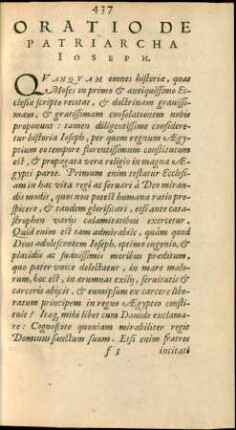 437
ORATIO DE
PATRIARCHA
IOSEPH.
QVANQVAM omnes historiæ, quas
Moses in primo & antiquissimo Ec-
clesiæ scripto recitat, & doctrinam grauissi-
mam, & gratissimam consolationem nobis
proponunt: tamen diligentissime considere-
tur historia Ioseph, per quem regnum Aegy-
ptium eo tempore florentissimum constitutum
est, & propagata vera religio in magna Ae-
gypti parte. Primum enim testatur Ecclesi-
am in hac vita regi ac seruari à Deo miran-
dis modis, quos non potest humana ratio pro-
spicere, & tandem glorificari, etsi ante cata-
strophen varijs calamitatibus exercetur.
Quid enim est tam admirabile, quàm quod
Deus adolescentem Ioseph, optimo ingenio, &
placidis ac suauissimis moribus præditum,
quo pater vnice delectatur, in mare malo-
rum, hoc est, in ærumnas exilij, seruitutis &
carceris abijcit, & eumipsum ex carcere libe-
ratum principem in regno Aegyptio consti-
tuit? Itaq, mihi libet cum Dauide exclama-
re: Cognoscite quoniam mirabiliter regit
Dominus sanctum suum. Etsi enim fratres
f 3 incitati